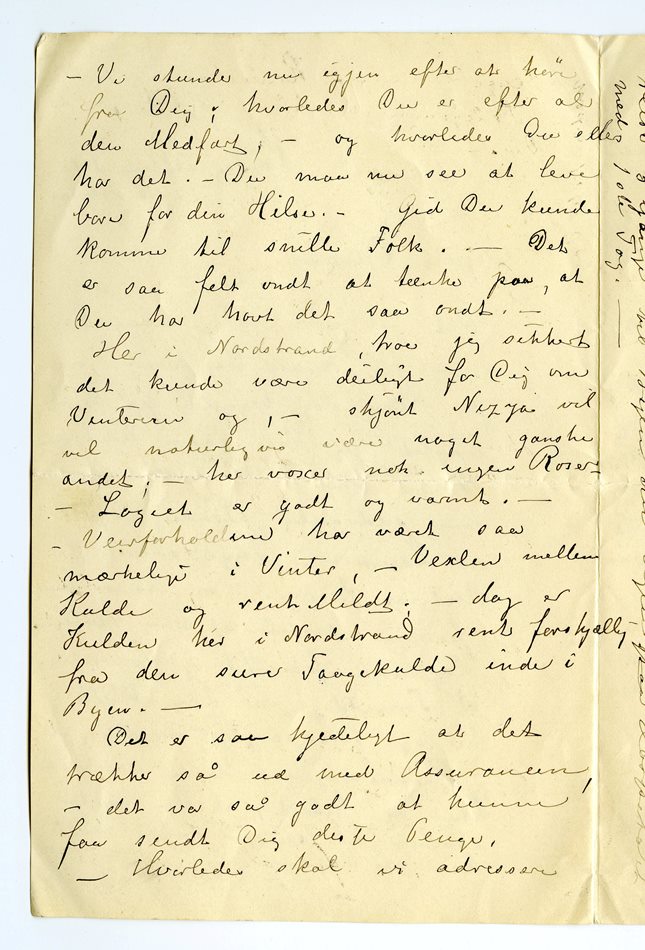 – Vi stunder nu igjen efter at høre
fra Dig, hvorledes Du er efter al
den Medfart, – og hvorledes Du ellers
har det. – Du maa nu see at leve
bare for din Hilse. – Gid Du kunde
komme til snille Folk. – Det
er saa fælt ondt at tænke paa, at
Du har havt det saa ondt. –
Her i Nordstrand, tror jeg sikkert
det kunde være deiligt for Dig om
Vinteren og, – skjønt Nizza vil
vil naturligvis være noget ganske
andet, – her voxer nok ingen Roser –
– Logiet er godt og varmt. –
– Veirforholdene har været saa
mærkelige i Vinter, – Vexlen mellem
Kulde og rent Mildt. – dog er
Kulden her i Nordstrand rent forskjællig
fra den sure Taagekulde inde i
Byen. –
Det er saa kjedeligt at det
trækker så ud med Assurancen,
– det var så godt at kunne
faa sendt Dig disse Penge.
– Hvorledes skal vi adressere
med 1 ole Tog. –